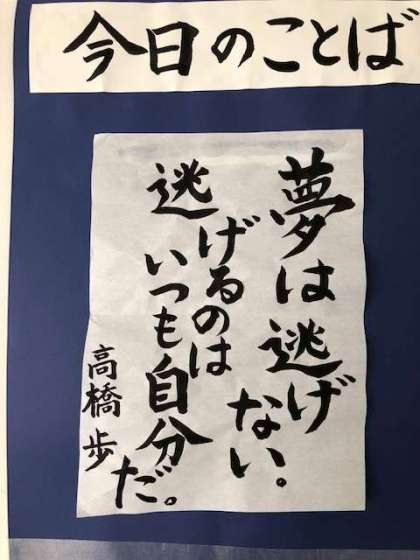 今日のことば
夢は逃げ
ない。
逃げるのは
いつも自分だ。
高橋歩